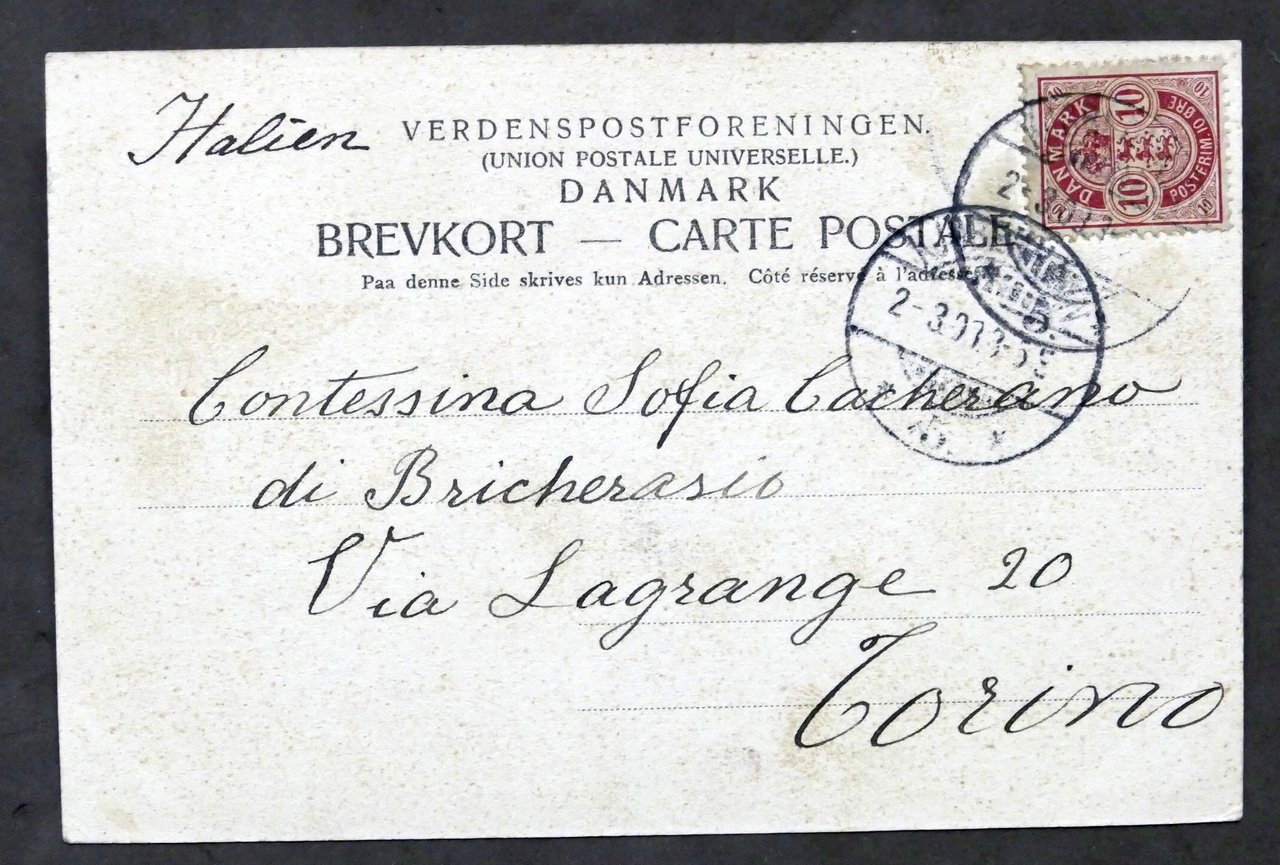 Italien
VERDENSPOSTFORENINGEN.
(UNION POSTALE UNIVERSELLE.)
DANMARK
BREVKORT — CARTE POSTALE
Paa denne Side skrives kun Adressen. Côté réservé à l'adresse.
DANMARK
POSTFRIM. 10 ØRE
10 10
10 10 10 10
2-3.01.3-5 E
Contessina Sofia Cacherano
di Bricherasio
Via Lagrange 20
Torino